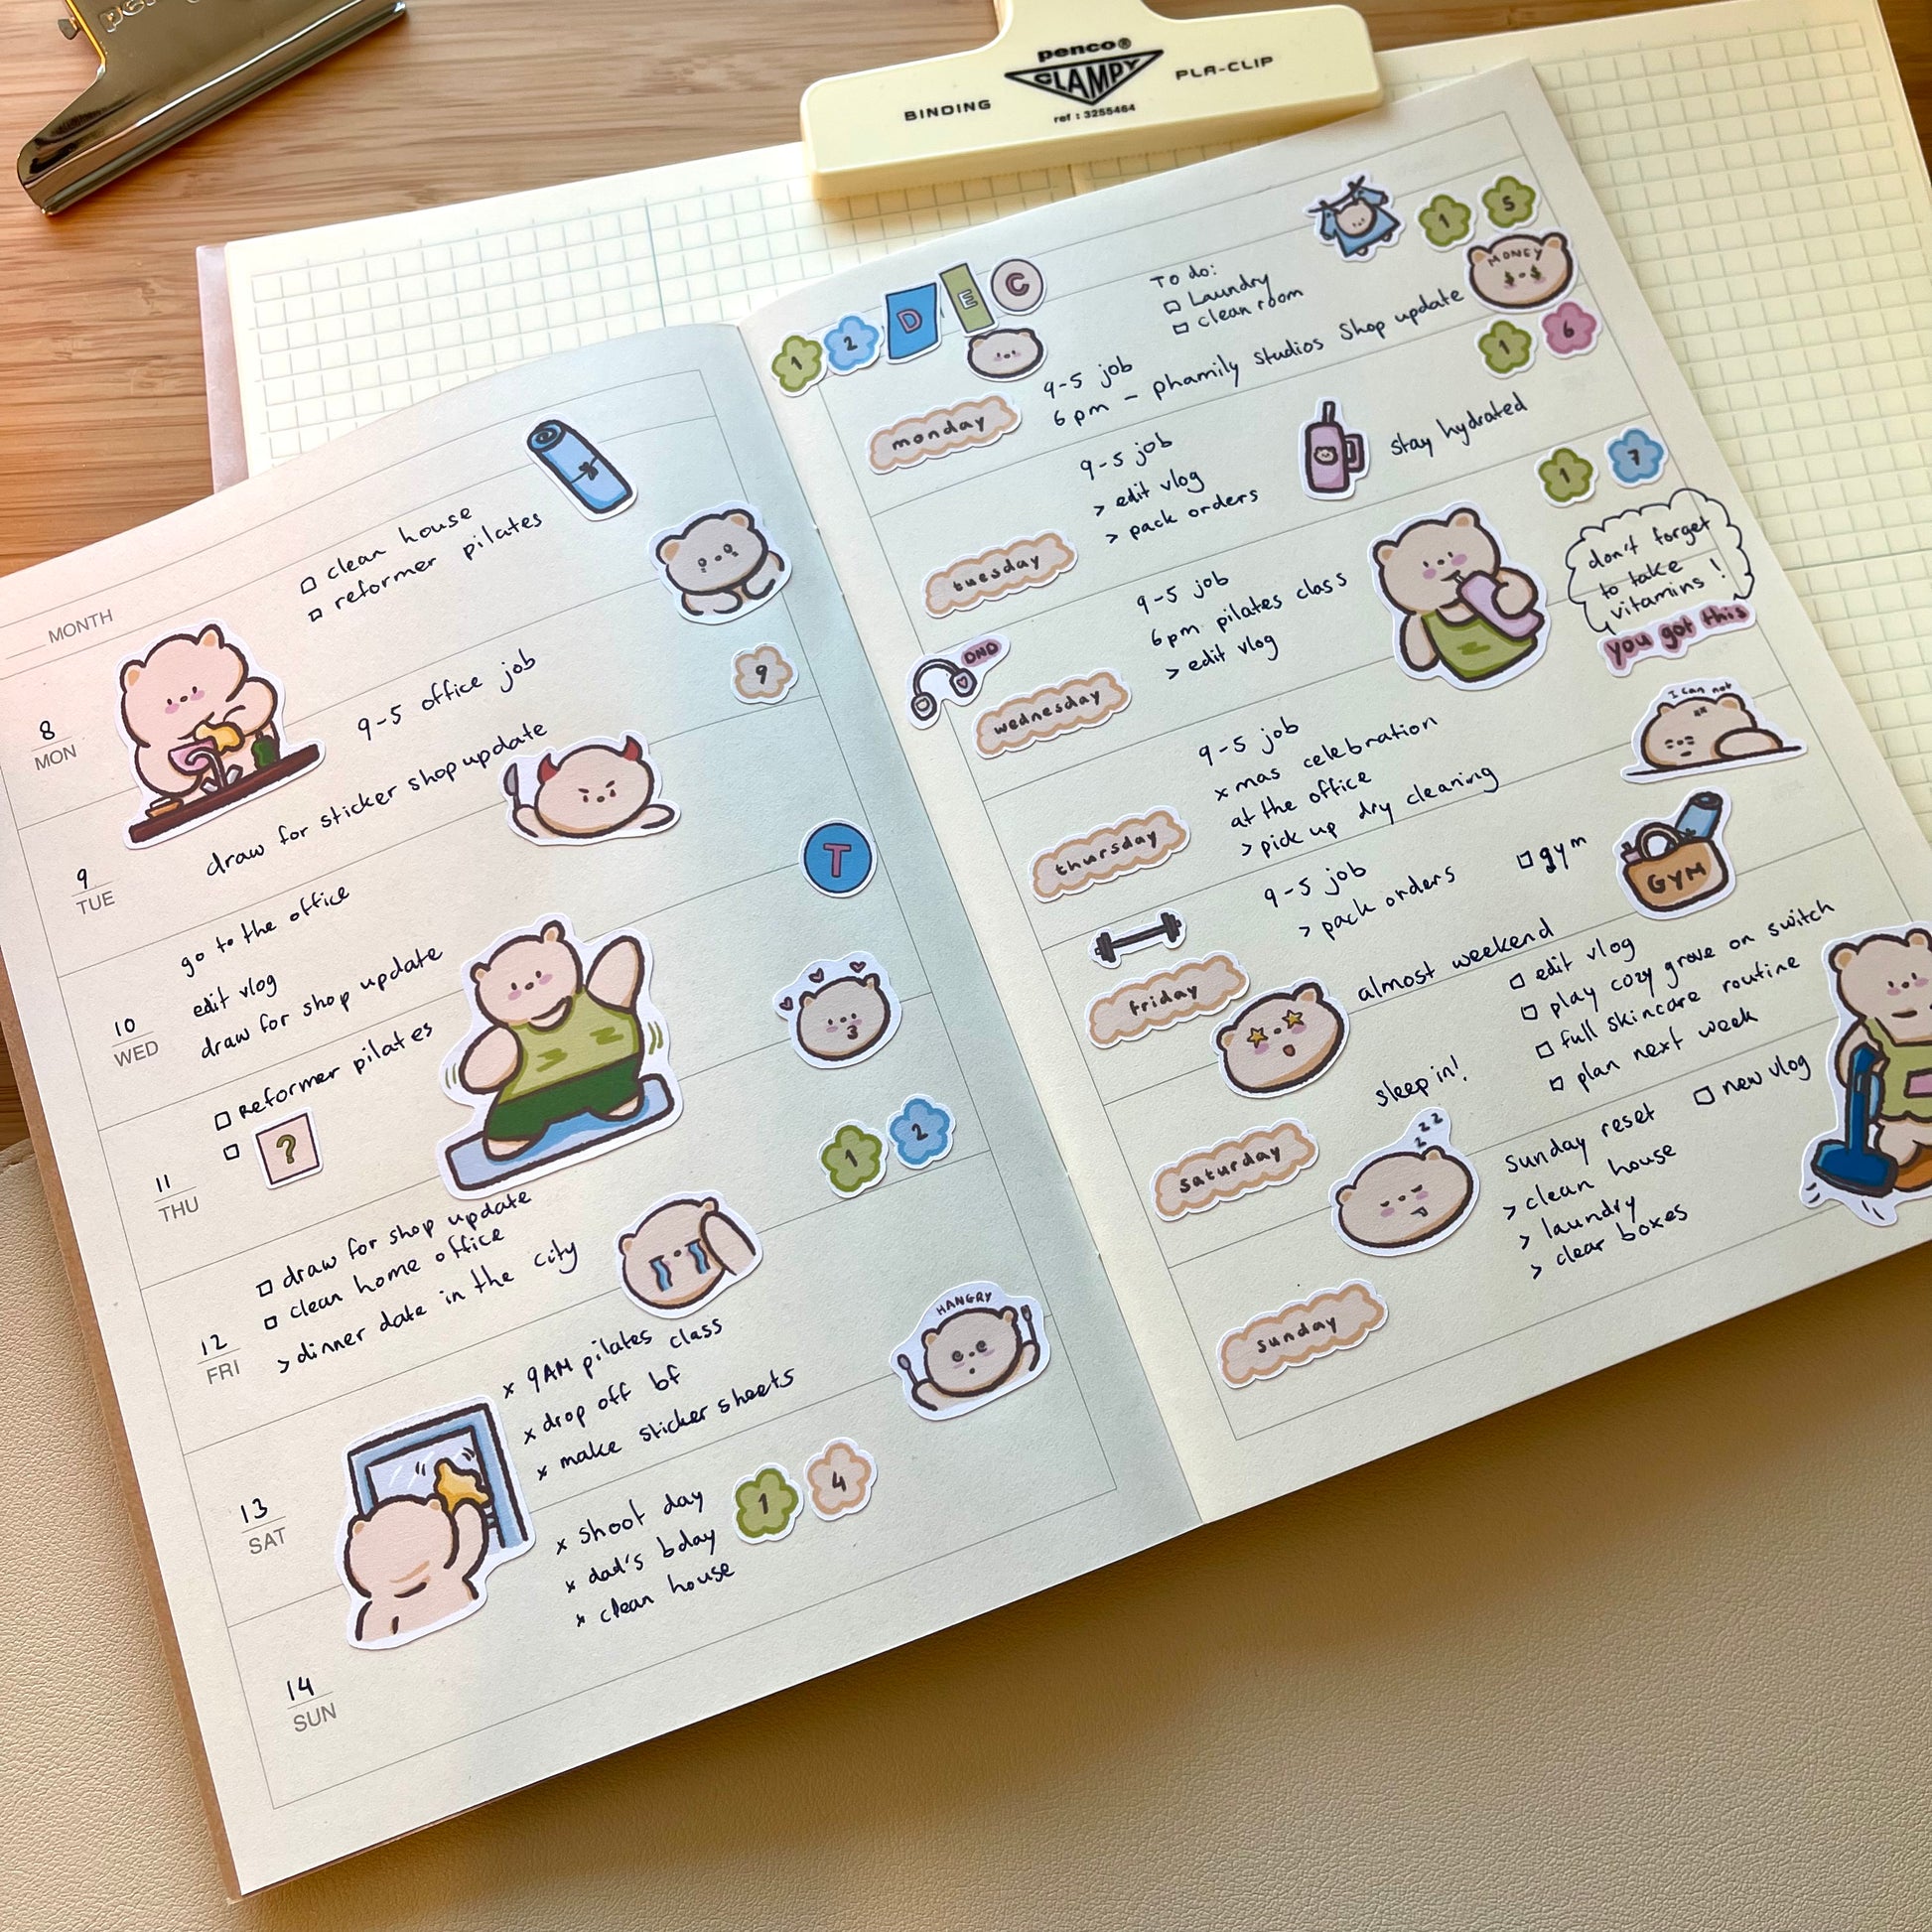 penco®
CLAMPY
BINDING
PLA-CLIP
ref : 3255464
MONTH
□ clean house
□ reformer pilates
8
MON
9-5 office job
draw for sticker shop update
9
9
TUE
go to the office
edit vlog
draw for shop update
T
10
WED
□ Reformer pilates
□ ?
11
THU
□ draw for shop update
□ clean home office
> dinner date in the city
1 2
12
FRI
x 9AM pilates class
x drop off bf
x make sticker sheets
HANGRY
13
SAT
x shoot day
x dad's bday
x clean house
1 4
14
SUN
1 2 D E C
To do:
□ Laundry
□ clean room
1 5
MONEY
monday
9-5 job
6pm - phamily studios shop update
1 6
tuesday
9-5 job
> edit vlog
> pack orders
stay hydrated
1 7
DND
wednesday
9-5 job
6pm pilates class
> edit vlog
don't forget
to take
vitamins!
you got this
thursday
9-5 job
xmas celebration
at the office
> pick up dry cleaning
I can not
friday
9-5 job
> pack orders
□ gym
GYM
almost weekend
saturday
sleep in!
z z z
□ edit vlog
□ play cozy grove on switch
□ full skincare routine
□ plan next week
sunday
sunday reset
> clean house
> laundry
> clear boxes
□ new vlog